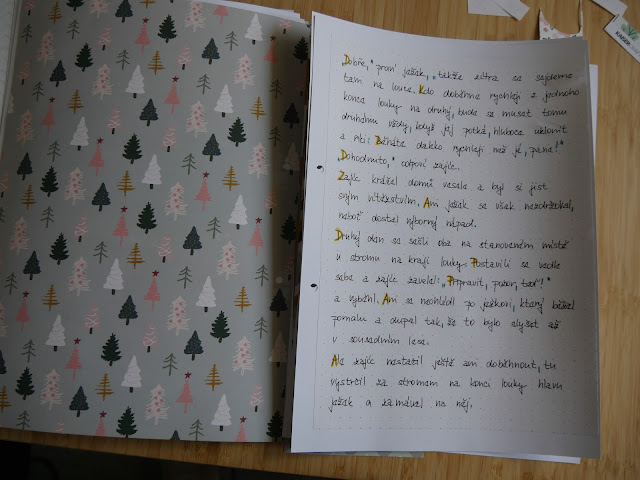 Dobře," praví ježek, „takže zítra se sejdeme
tam na louce. Kdo doběhne rychleji z jednoho
konce louky na druhý, bude se muset tomu
druhému vždy, když jej potká, hluboce uklonit
a říci: Běháte daleko rychleji než já, pane!"
„Dohodnuto," odpoví zajíc.
Zajíc kráčel domů vesele a byl si jist
svým vítězstvím. Ani ježek se však nezdržoval,
neboť dostal výborný nápad.
Druhý den se sešli oba na stanoveném místě
u stromu na kraji louky. Postavili se vedle
sebe a zajíc zavelel: „Připravit, pozor, teď!"
a vyběhl. Ani se neohlédl po ježkovi, který běžel
pomalu a dupal tak, že to bylo slyšet až
v sousedním lese.
Ale zajíc nestačil ještě ani doběhnout, tu
vystrčil za stromem na konci louky hlavu
ježek a zamával na něj.